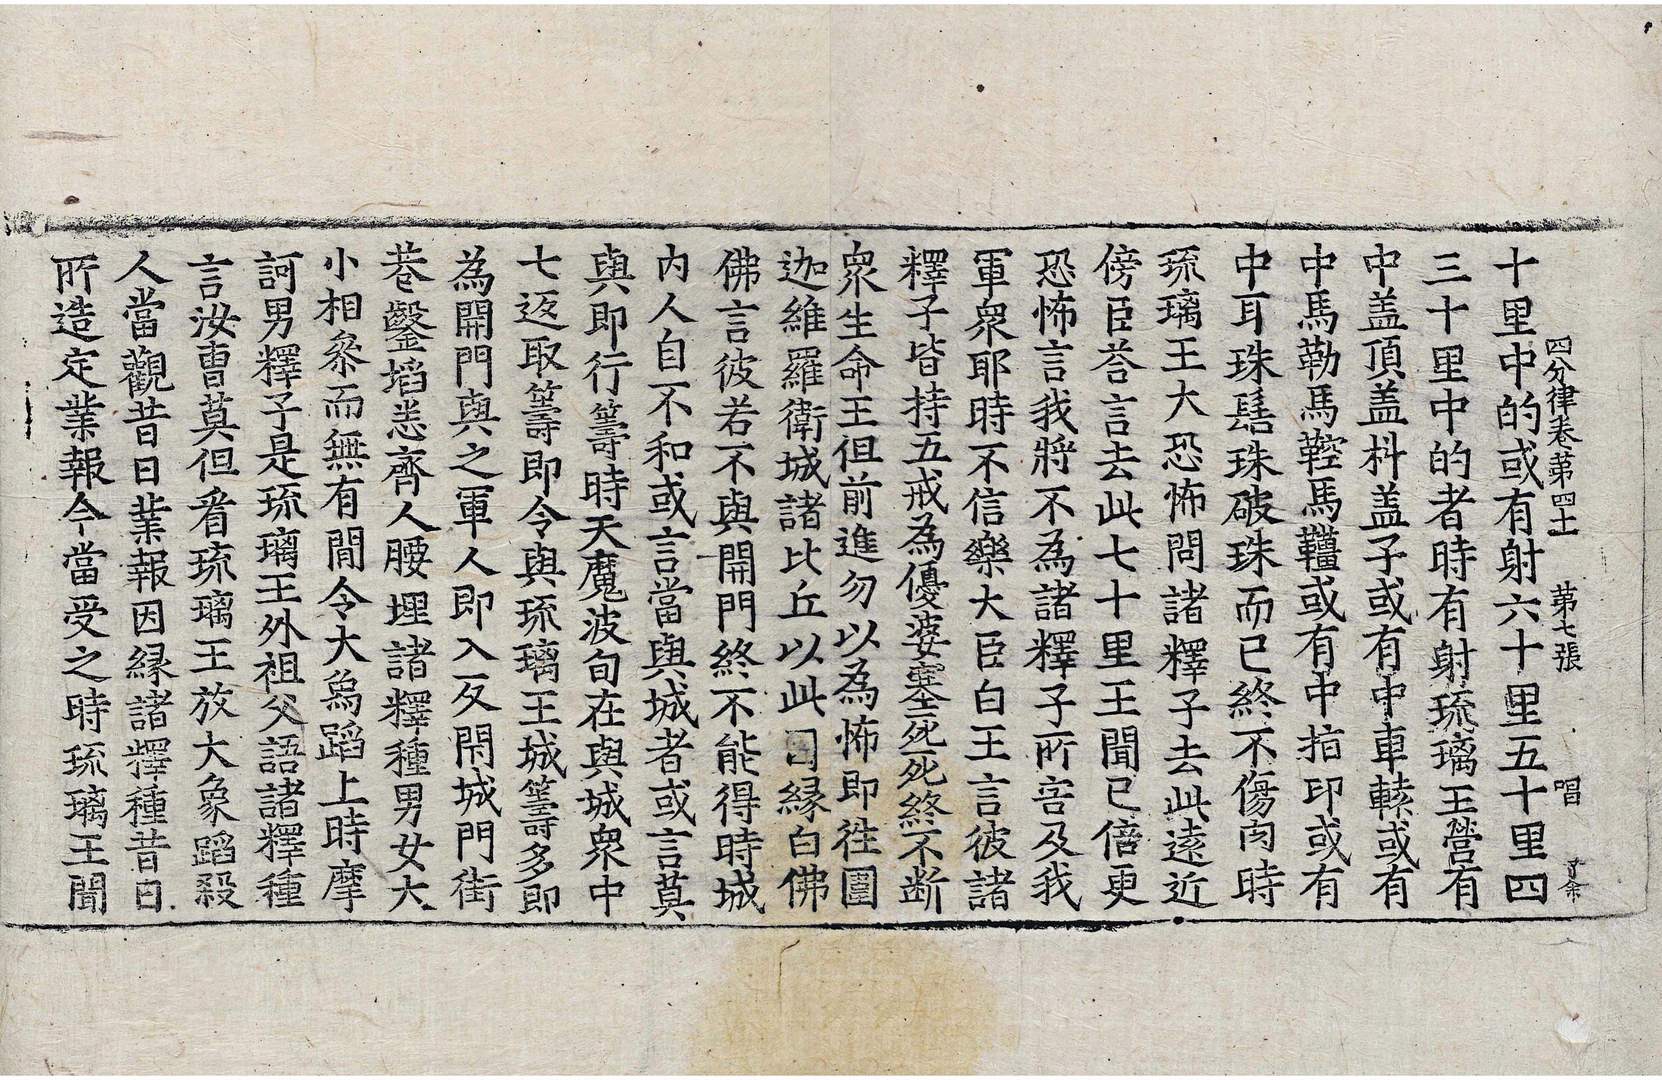 四分律卷第四十一 第七張 唱
十里中的或有射六十里五十里四
三十里中的者時有射琉璃王營有
中盖頂盖枓盖子或有中車轅或有
中馬勒馬鞚馬韁或有中指印或有
中耳珠髻珠破珠而已終不傷肉時
琉璃王大恐怖問諸釋子去此遠近
傍臣荅言去此七十里王聞已倍更
恐怖言我將不為諸釋子所害及我
軍衆耶時不信樂大臣白王言彼諸
釋子皆持五戒為優婆塞至死終不断
衆生命王但前進勿以為怖即往圍
迦維羅衛城諸比丘以此因縁白佛
佛言彼若不與開門終不能得時城
內人自不和或言當與城者或言莫
與即行籌時天魔波旬在與城衆中
七返取籌即令與琉璃王城籌多即
為開門與之軍人即入反閇城門街
巷鑿壔悉齊人腰埋諸釋種男女大
小相叅而無有閒令大象蹈上時摩
訶男釋子是琉璃王外祖父語諸釋種
言汝曹莫但看琉璃王放大象蹈殺
人當觀昔日業報因縁諸釋種昔日
所造定業報今當受之時琉璃王聞